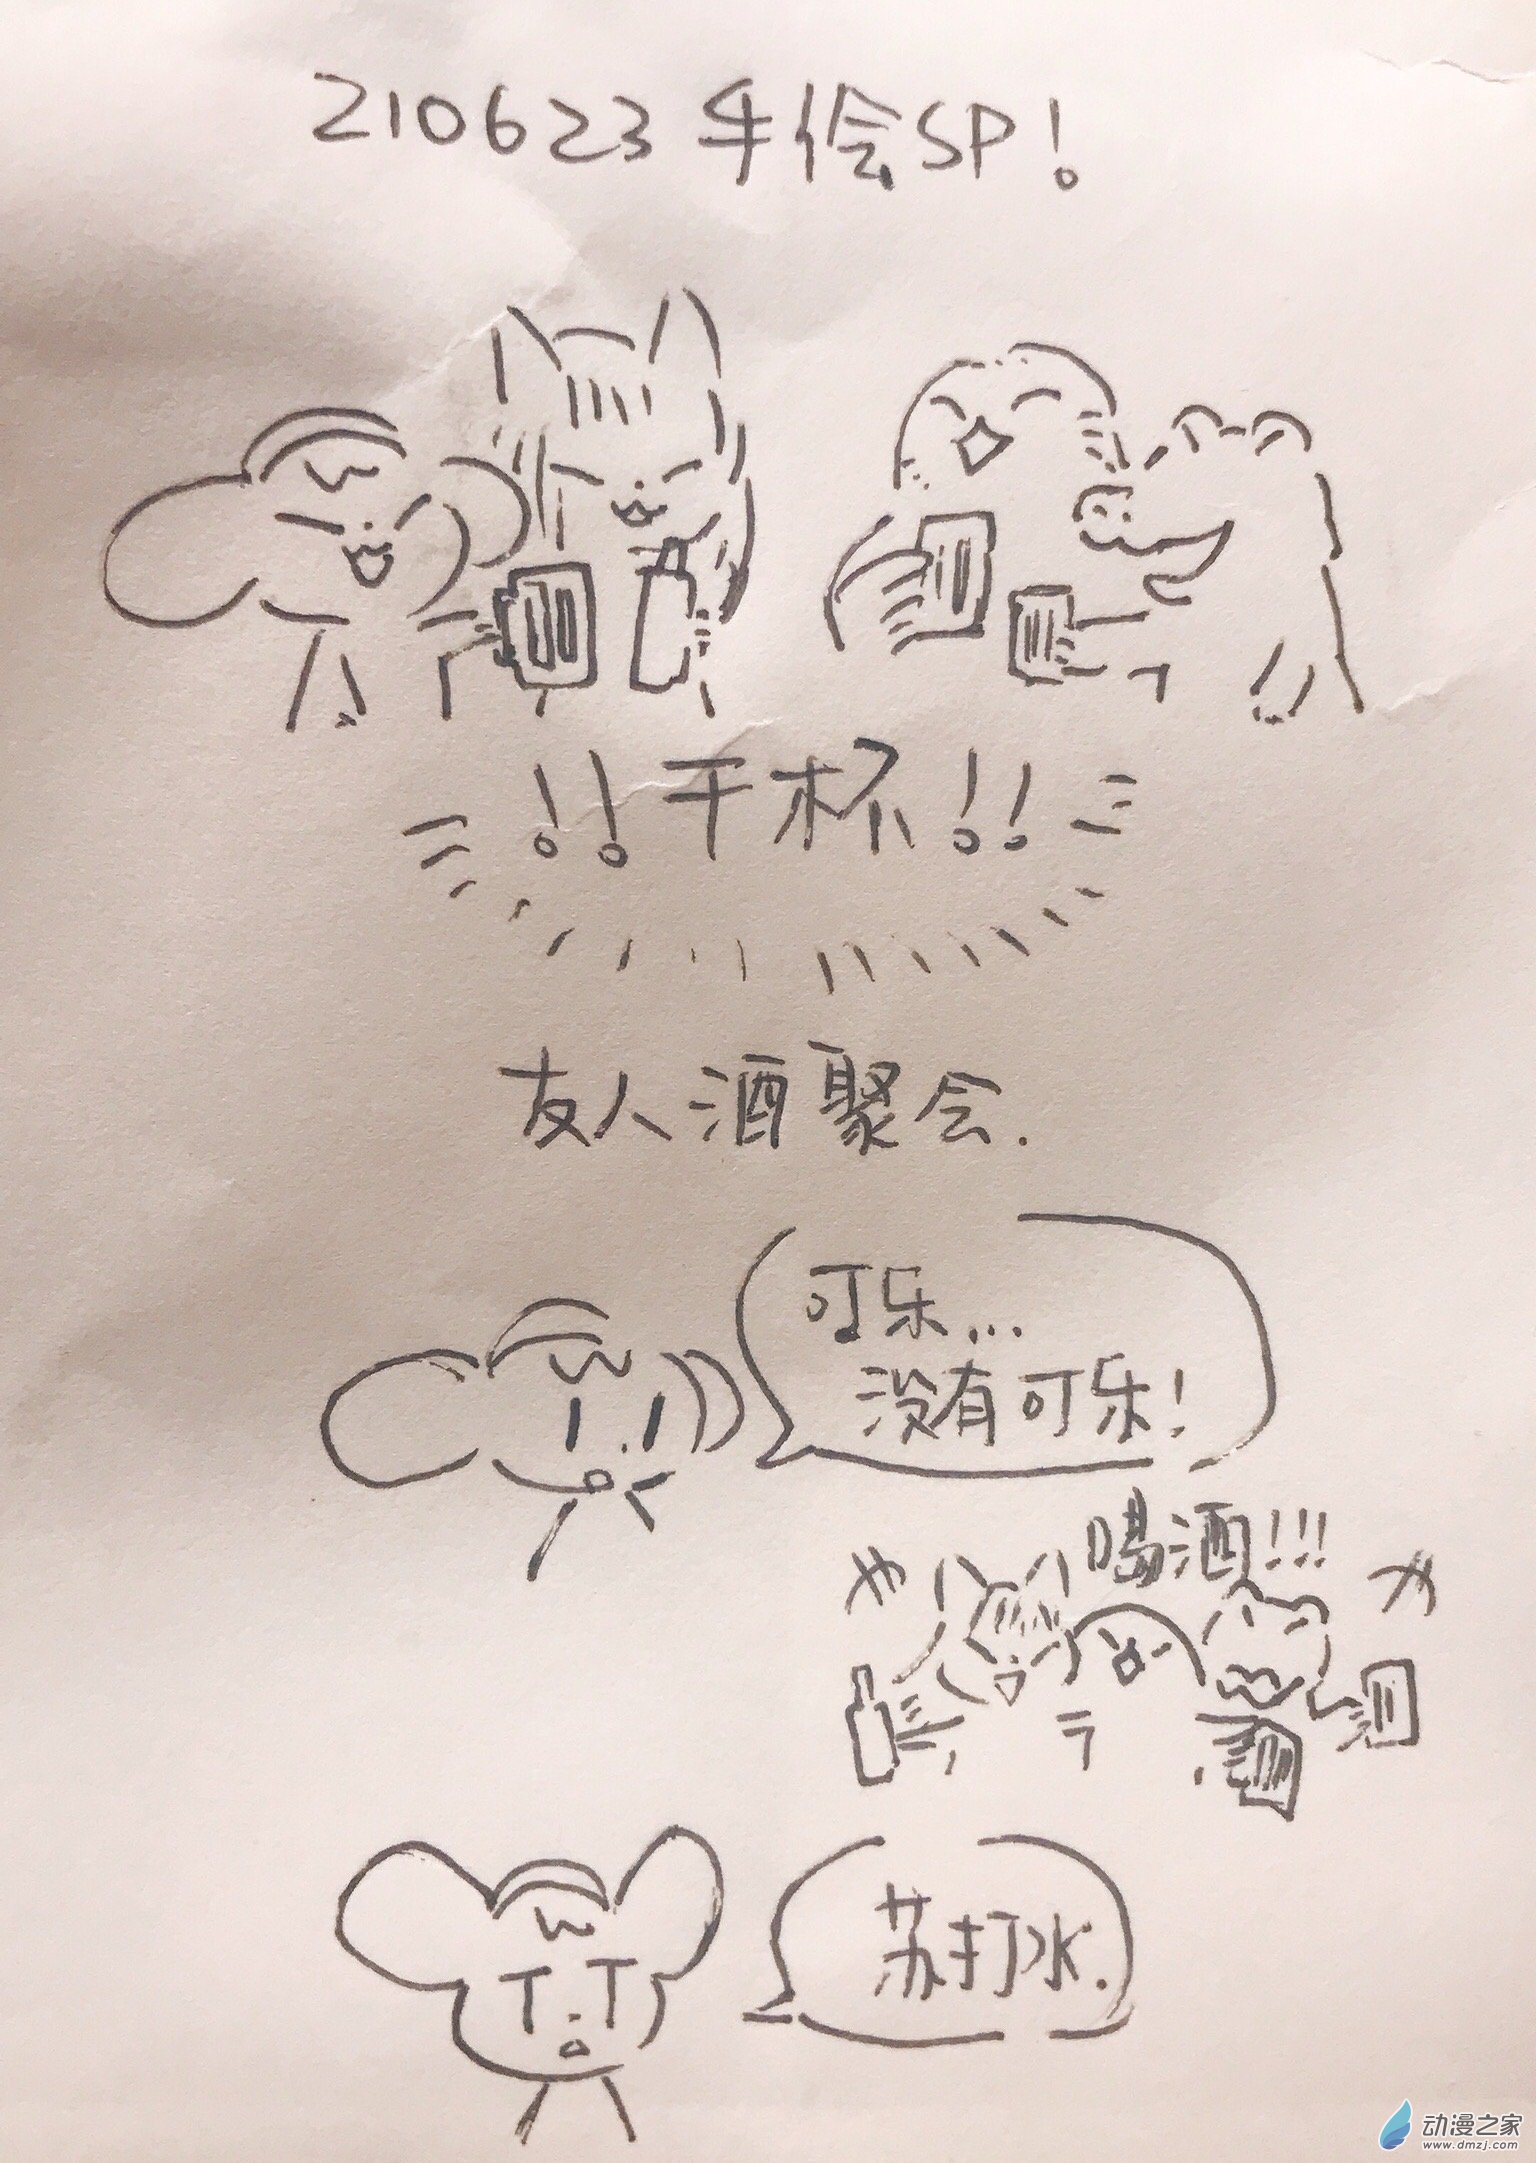 210623 手绘SP!
!!干杯!!
友人酒聚会.
可乐...
没有可乐!
喝酒!!!
苏打水.
动漫之家
www.dmzj.com